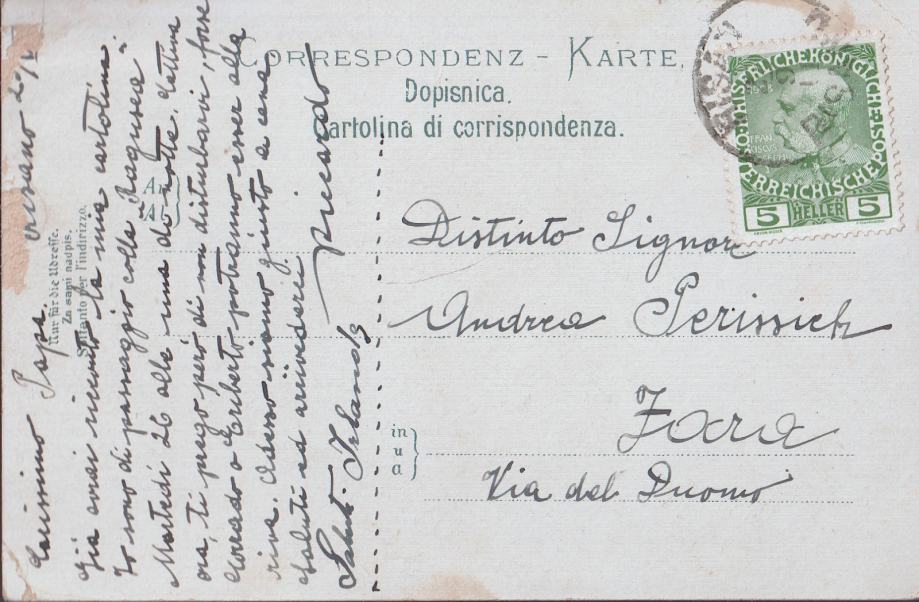 CORRESPONDENZ - KARTE.
Dopisnica.
Cartolina di corrispondenza.
An
Al
Nur für die Adresse.
Za sami nadpis.
Soltanto per l'indirizzo.
Distinto Signor
Andrea Perissich
Zara
Via del Duomo
in
u
a
FRAN
KAISERLICHE KÖNIGLICHE
ÖSTERREICHISCHE POST
5 HELLER 5
Carissimo Papà.
già avrai ricevuto la mia cartolina.
Io sono di passaggio colla "Ragusea"
Martedì 26 alle una di notte. Cattiva
ora, ti prego però di non disturbarvi, forse
Corrado o Eriberto potranno esser alla
riva. Adesso siamo giunto a cena
Saluti ed arivederci.
Riccardo
Saluti